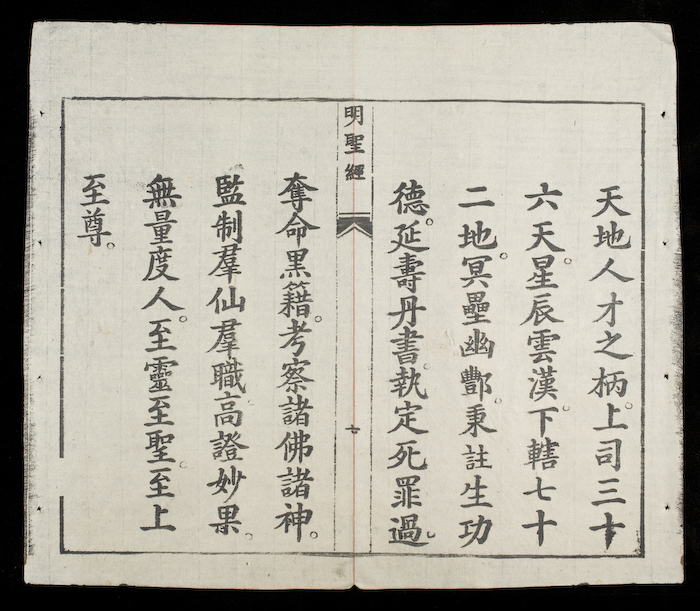 天地人才之柄。上司三十
六天。星辰雲漢。下轄七十
二地。冥壘幽酆。秉註生功
德。延壽丹書。執定死罪過。
明聖經
七
奪命黑籍。考察諸佛諸神。
監制羣仙羣職。高證妙果。
無量度人。至靈至聖。至上
至尊。